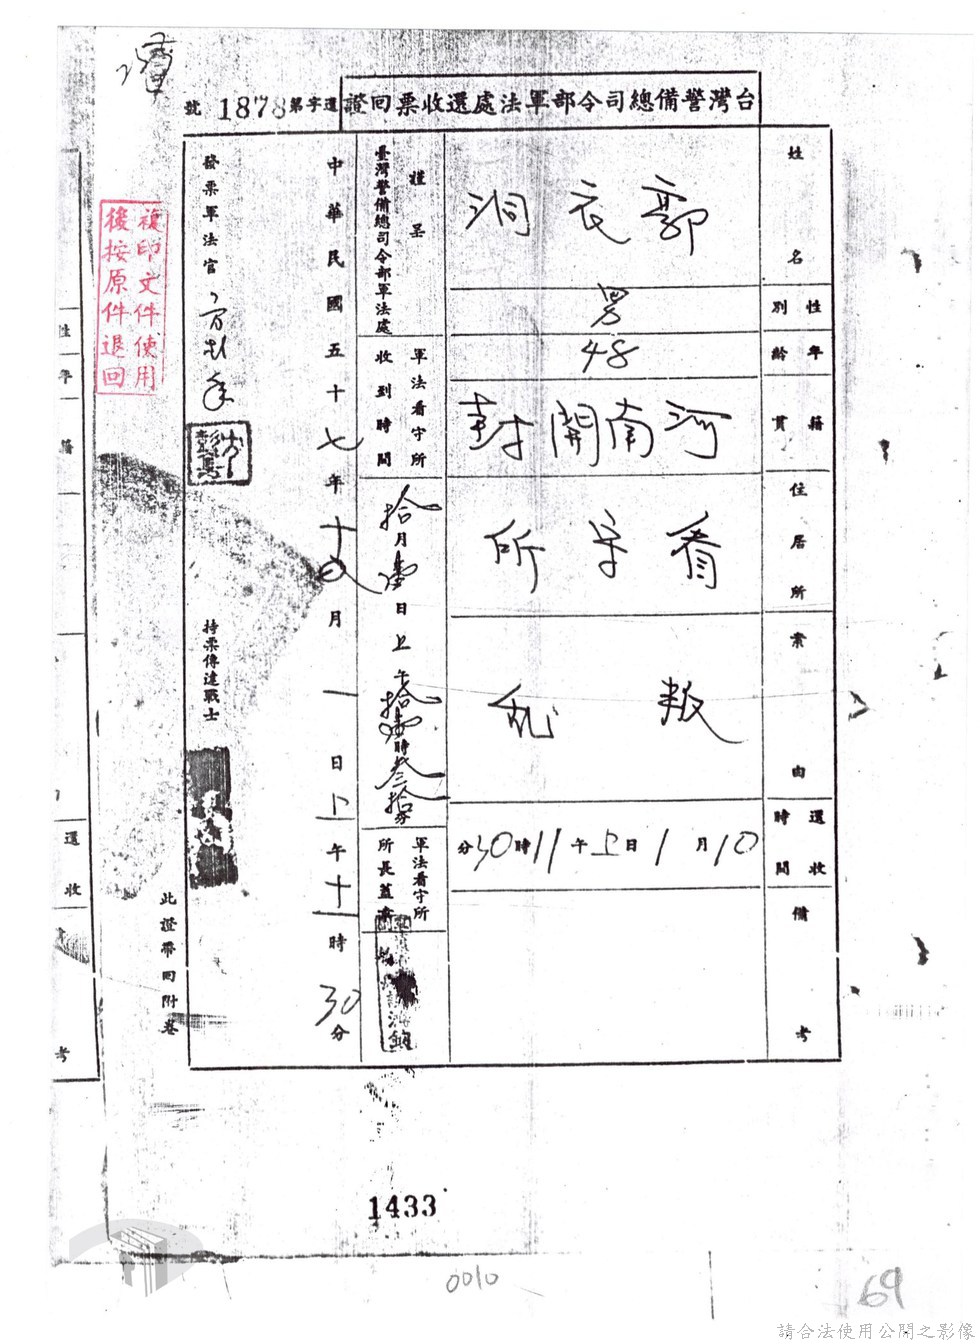 台灣警備總司令部軍法處還收票回證
還字第1878號
姓名
郭衣洞
性別
男
年齡
48
籍貫
河南開封
住居所
看守所
案由
叛亂
還收時間
10月1日上午11時30分
備考
謹呈
臺灣警備總司令部軍法處
軍法看守所收到時間
拾月壹日上午拾壹時叁拾分
軍法看守所所長蓋章
中華民國五十七年十月一日上午十一時30分
發票軍法官
持票傳達戰士
此證帶回附卷
複印文件使用
後按原件退回
性
年
籍
還
收
考
1433
0010
69
請合法使用公開之影像